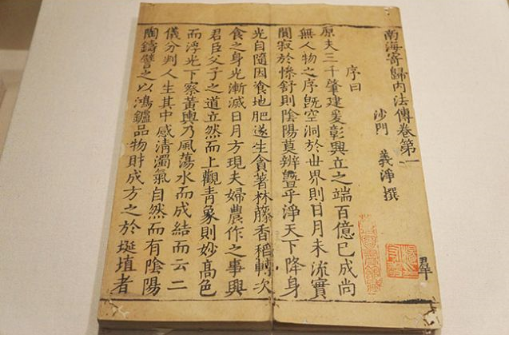 南海寄歸內法傳卷第一
沙門 義淨 撰
序曰
原夫三千肇建爰彰興立之端百億已成尚
無人物之序既空洞於世界則日月未流實
闃寂於慘舒則陰陽莫辨曁乎淨天下降身
光自隨因飡地肥遂生貪著林藤香稻轉次
食之身光漸滅日月方現夫婦農作之事興
君臣父子之道立然而上觀青象則妙高色
而浮光下察黃輿乃風蕩水而成結而云二
儀分判人生其中感清濁氣自然而有陰陽
陶鑄譬之以鴻鑪品物財成方之於埏埴者